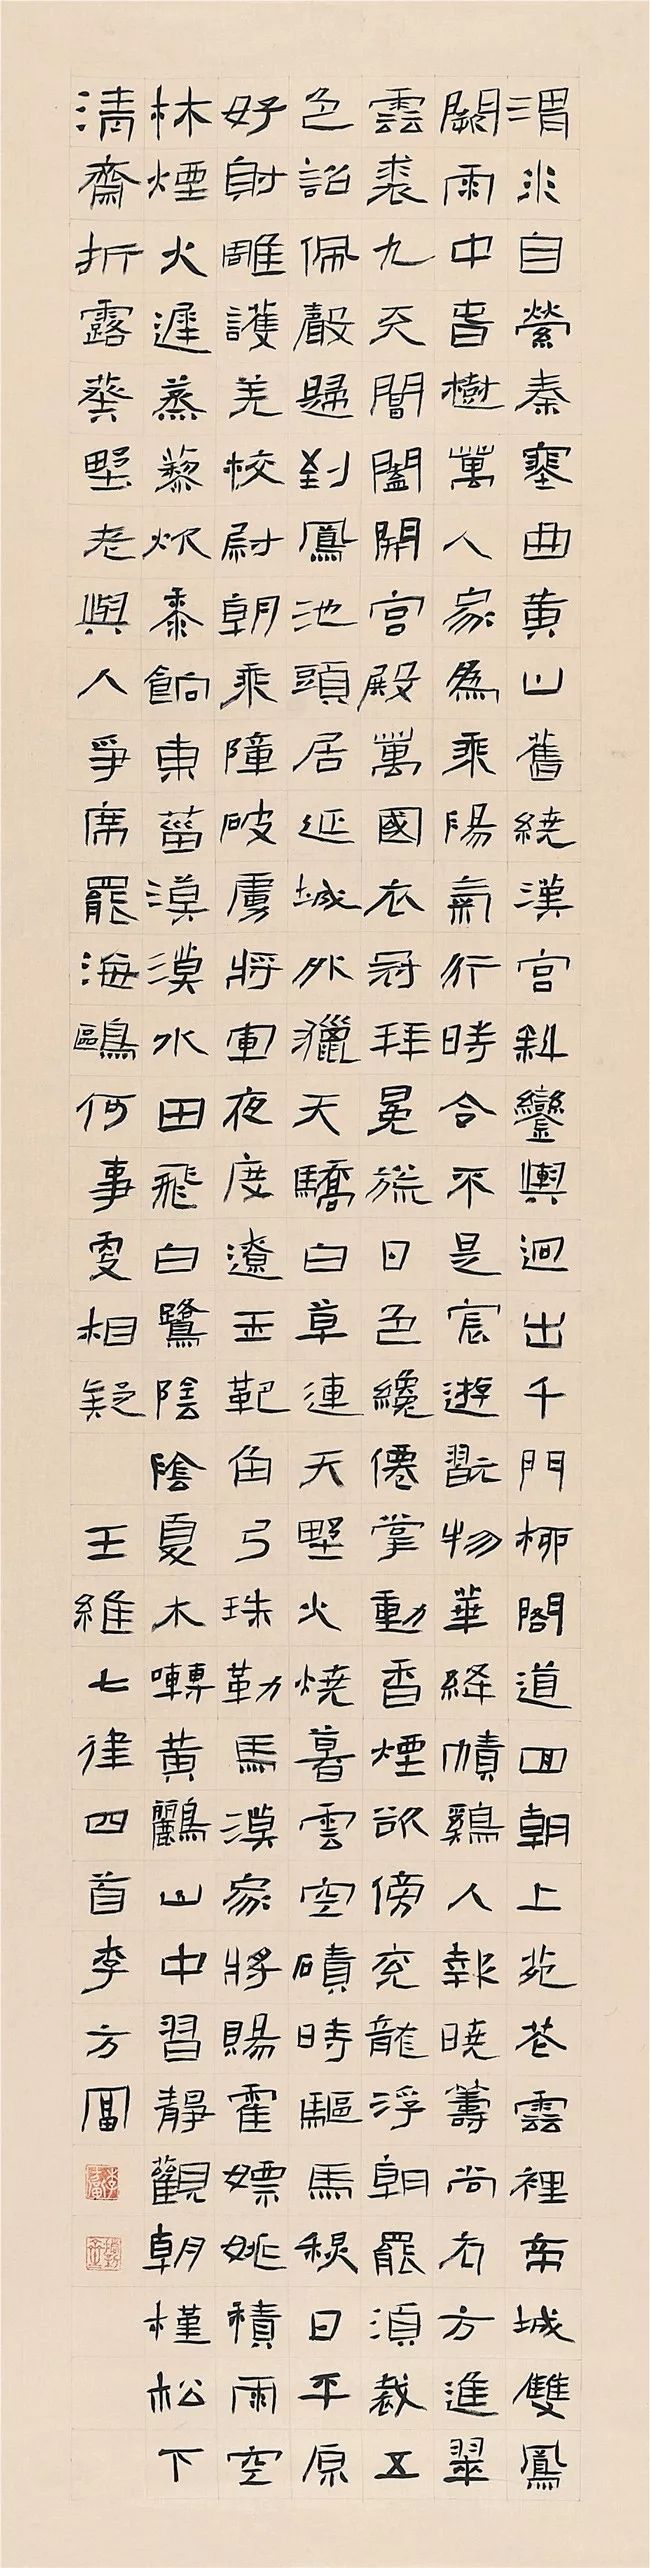 渭水自縈秦塞曲黄山舊繞漢宮斜鑾輿迥出千門柳閣道回朝上苑花雲裡帝城雙鳳
闕雨中春樹萬人家為乘陽氣行時合不是宸遊翫物華絳幘雞人報曉籌尚衣方進翠
雲裘九天閶闔開宮殿萬國衣冠拜冕旒日色纔僊掌動香煙欲傍衮龍浮朝罷須裁五
色詔佩聲歸到鳳池頭居延城外獵天驕白草連天野火燒暮雲空磧時驅馬秋日平原
好射雕護羌校尉朝乘障破虜將軍夜度遼玉靶角弓珠勒馬漢家將賜霍嫖姚積雨空
林煙火遲蒸藜炊黍餉東菑漠漠水田飛白鷺陰陰夏木囀黄鸝山中習靜觀朝槿松下
清齋折露葵野老與人爭席罷海鷗何事更相疑 王維七律四首李方